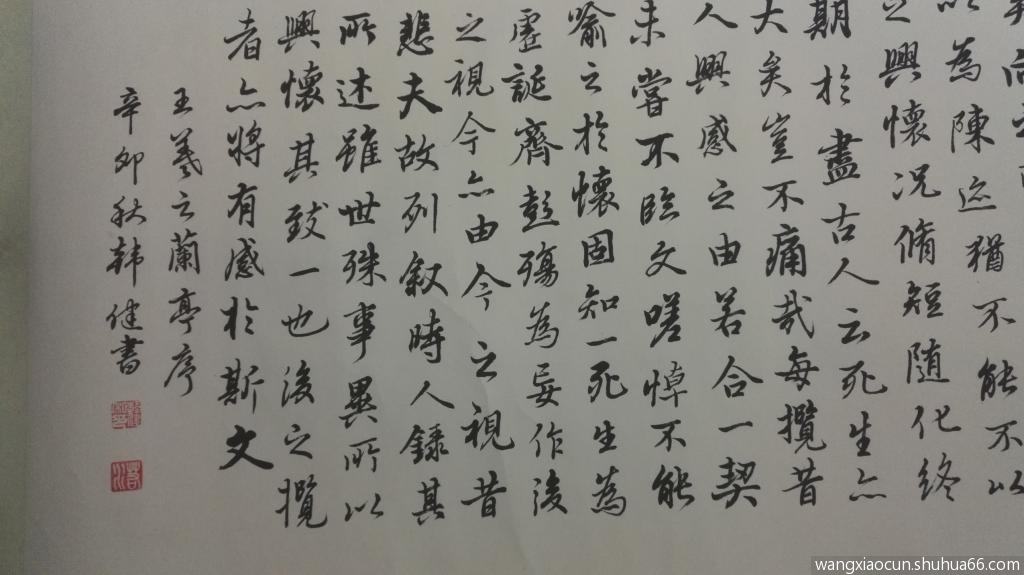 向之
以為陳迹猶不能不以
之興懷况脩短随化終
期於盡古人云死生亦
大矣豈不痛哉每攬昔
人興感之由若合一契
未嘗不臨文嗟悼不能
喻之於懷固知一死生為
虛誕齊彭殤為妄作後
之視今亦由今之視昔
悲夫故列叙時人録其
所述雖世殊事異所以
興懷其致一也後之攬
者亦將有感於斯文
王羲之蘭亭序
辛卯秋韩健書
wangxiaocun.shuhua66.com